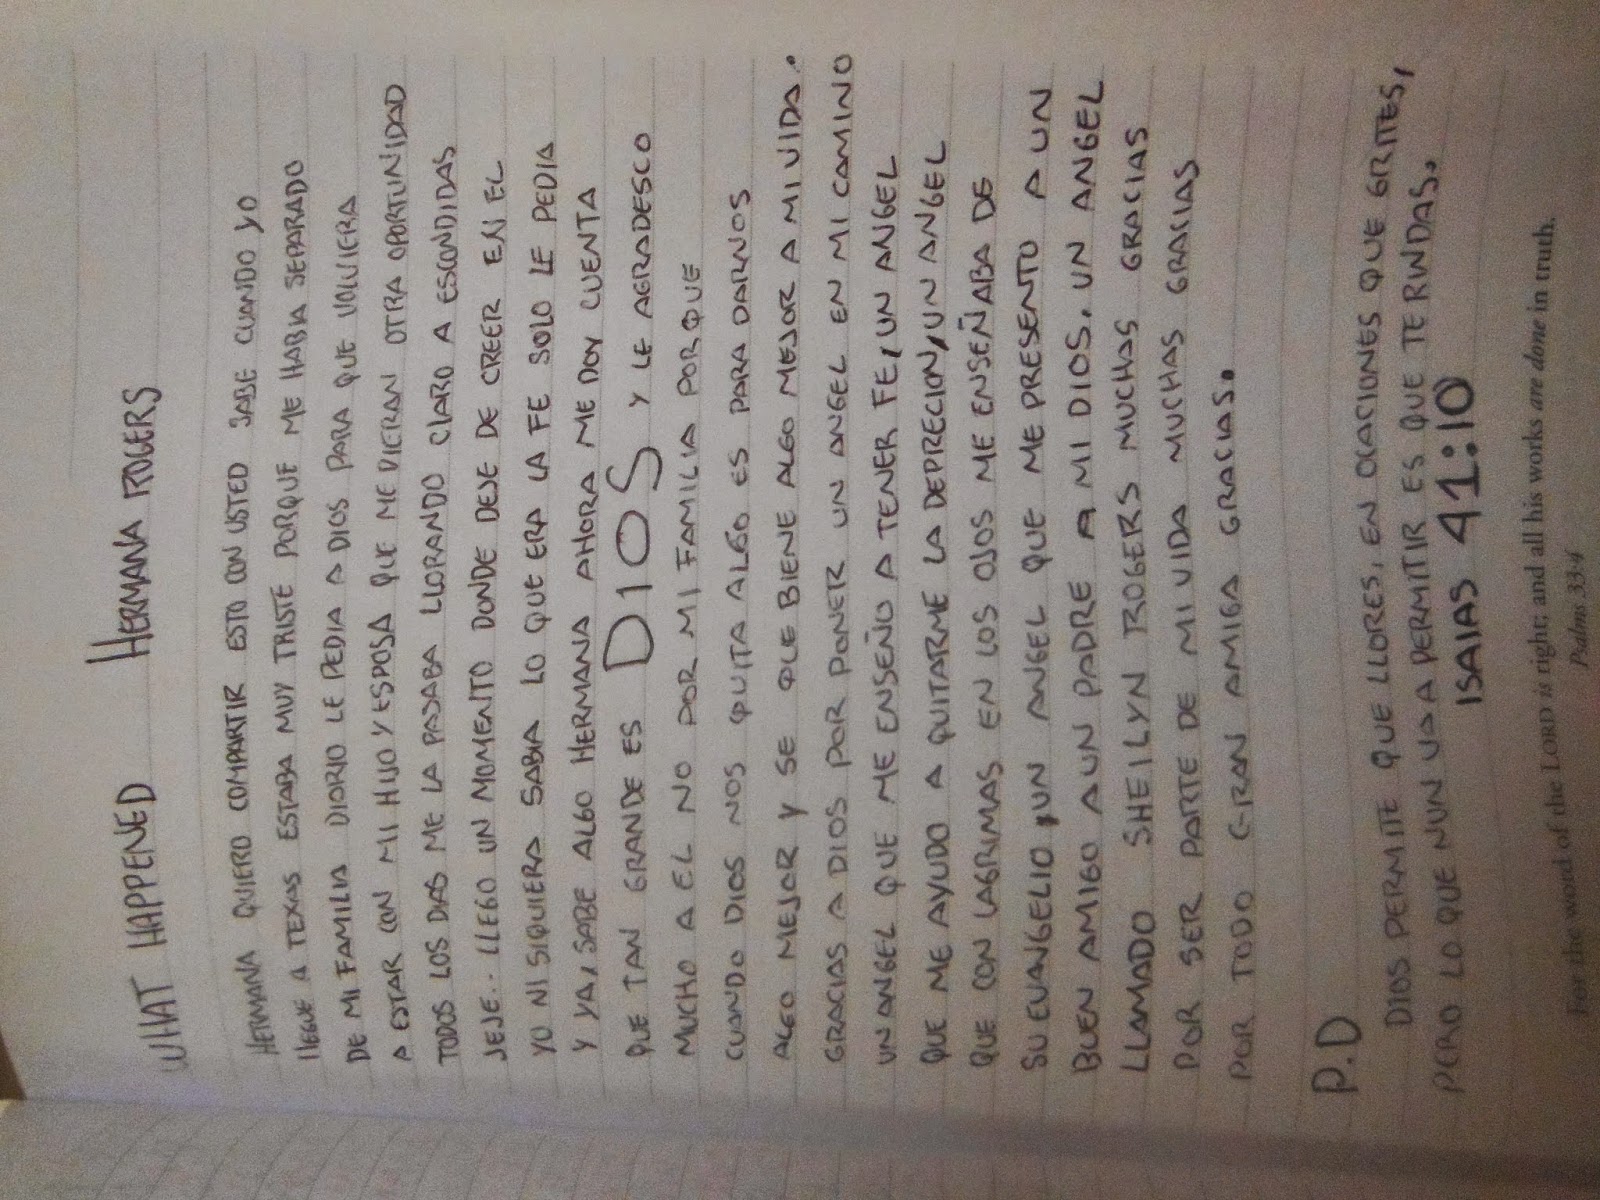 WHAT HAPPENED HERMANA ROGERS
HERMANA QUIERO COMPARTIR ESTO CON USTED SABE CUANDO YO
llEGUE A TEXAS ESTABA MUY TRISTE PORQUE ME HABIA SEPARADO
DE MI FAMILIA DIORIO LE PEDIA A DIOS PARA QUE VOLVIERA
A ESTAR CON MI HIJO Y ESPOSA QUE ME DIERAN OTRA OPORTUNIDAD
TODOS LOS DIAS ME LA PASABA LLORANDO CLARO A ESCONDIDAS
JEJE.. LLEGO UN MOMENTO DONDE DEJE DE CREER EN EL
YO NI SIQUIERA SABIA LO QUE ERA LA FE SOLO LE PEDIA
Y YA, SABE ALGO HERMANA AHORA ME DOY CUENTA
QUE TAN GRANDE ES DIOS Y LE AGRADESCO
MUCHO A EL NO POR MI FAMILIA PORQUE
CUANDO DIOS NOS QUITA ALGO ES PARA DARNOS
ALGO MEJOR Y SE QUE BIENE ALGO MEJOR A MI VIDA.
GRACIAS A DIOS POR PONER UN ANGEL EN MI CAMINO
UN ANGEL QUE ME ENSEÑO A TENER FE, UN ANGEL
QUE ME AYUDO A QUITARME LA DEPRECION, UN ANGEL
QUE CON LAGRIMAS EN LOS OJOS ME ENSEÑABA DE
SU EVANGELIO, UN ANGEL QUE ME PRESENTO A UN
BUEN AMIGO A UN PADRE A MI DIOS. UN ANGEL
LLAMADO SHEILYN ROGERS MUCHAS GRACIAS
POR SER PARTE DE MI VIDA MUCHAS GRACIAS
POR TODO GRAN AMIGA GRACIAS.
P.D
DIOS PERMITE QUE LLORES, EN OCACIONES QUE GRITES,
PERO LO QUE NUN VA A PERMITIR ES QUE TE RINDAS.
ISAIAS 41:10
For the word of the LORD is right; and all his works are done in truth.
Psalms 33:4